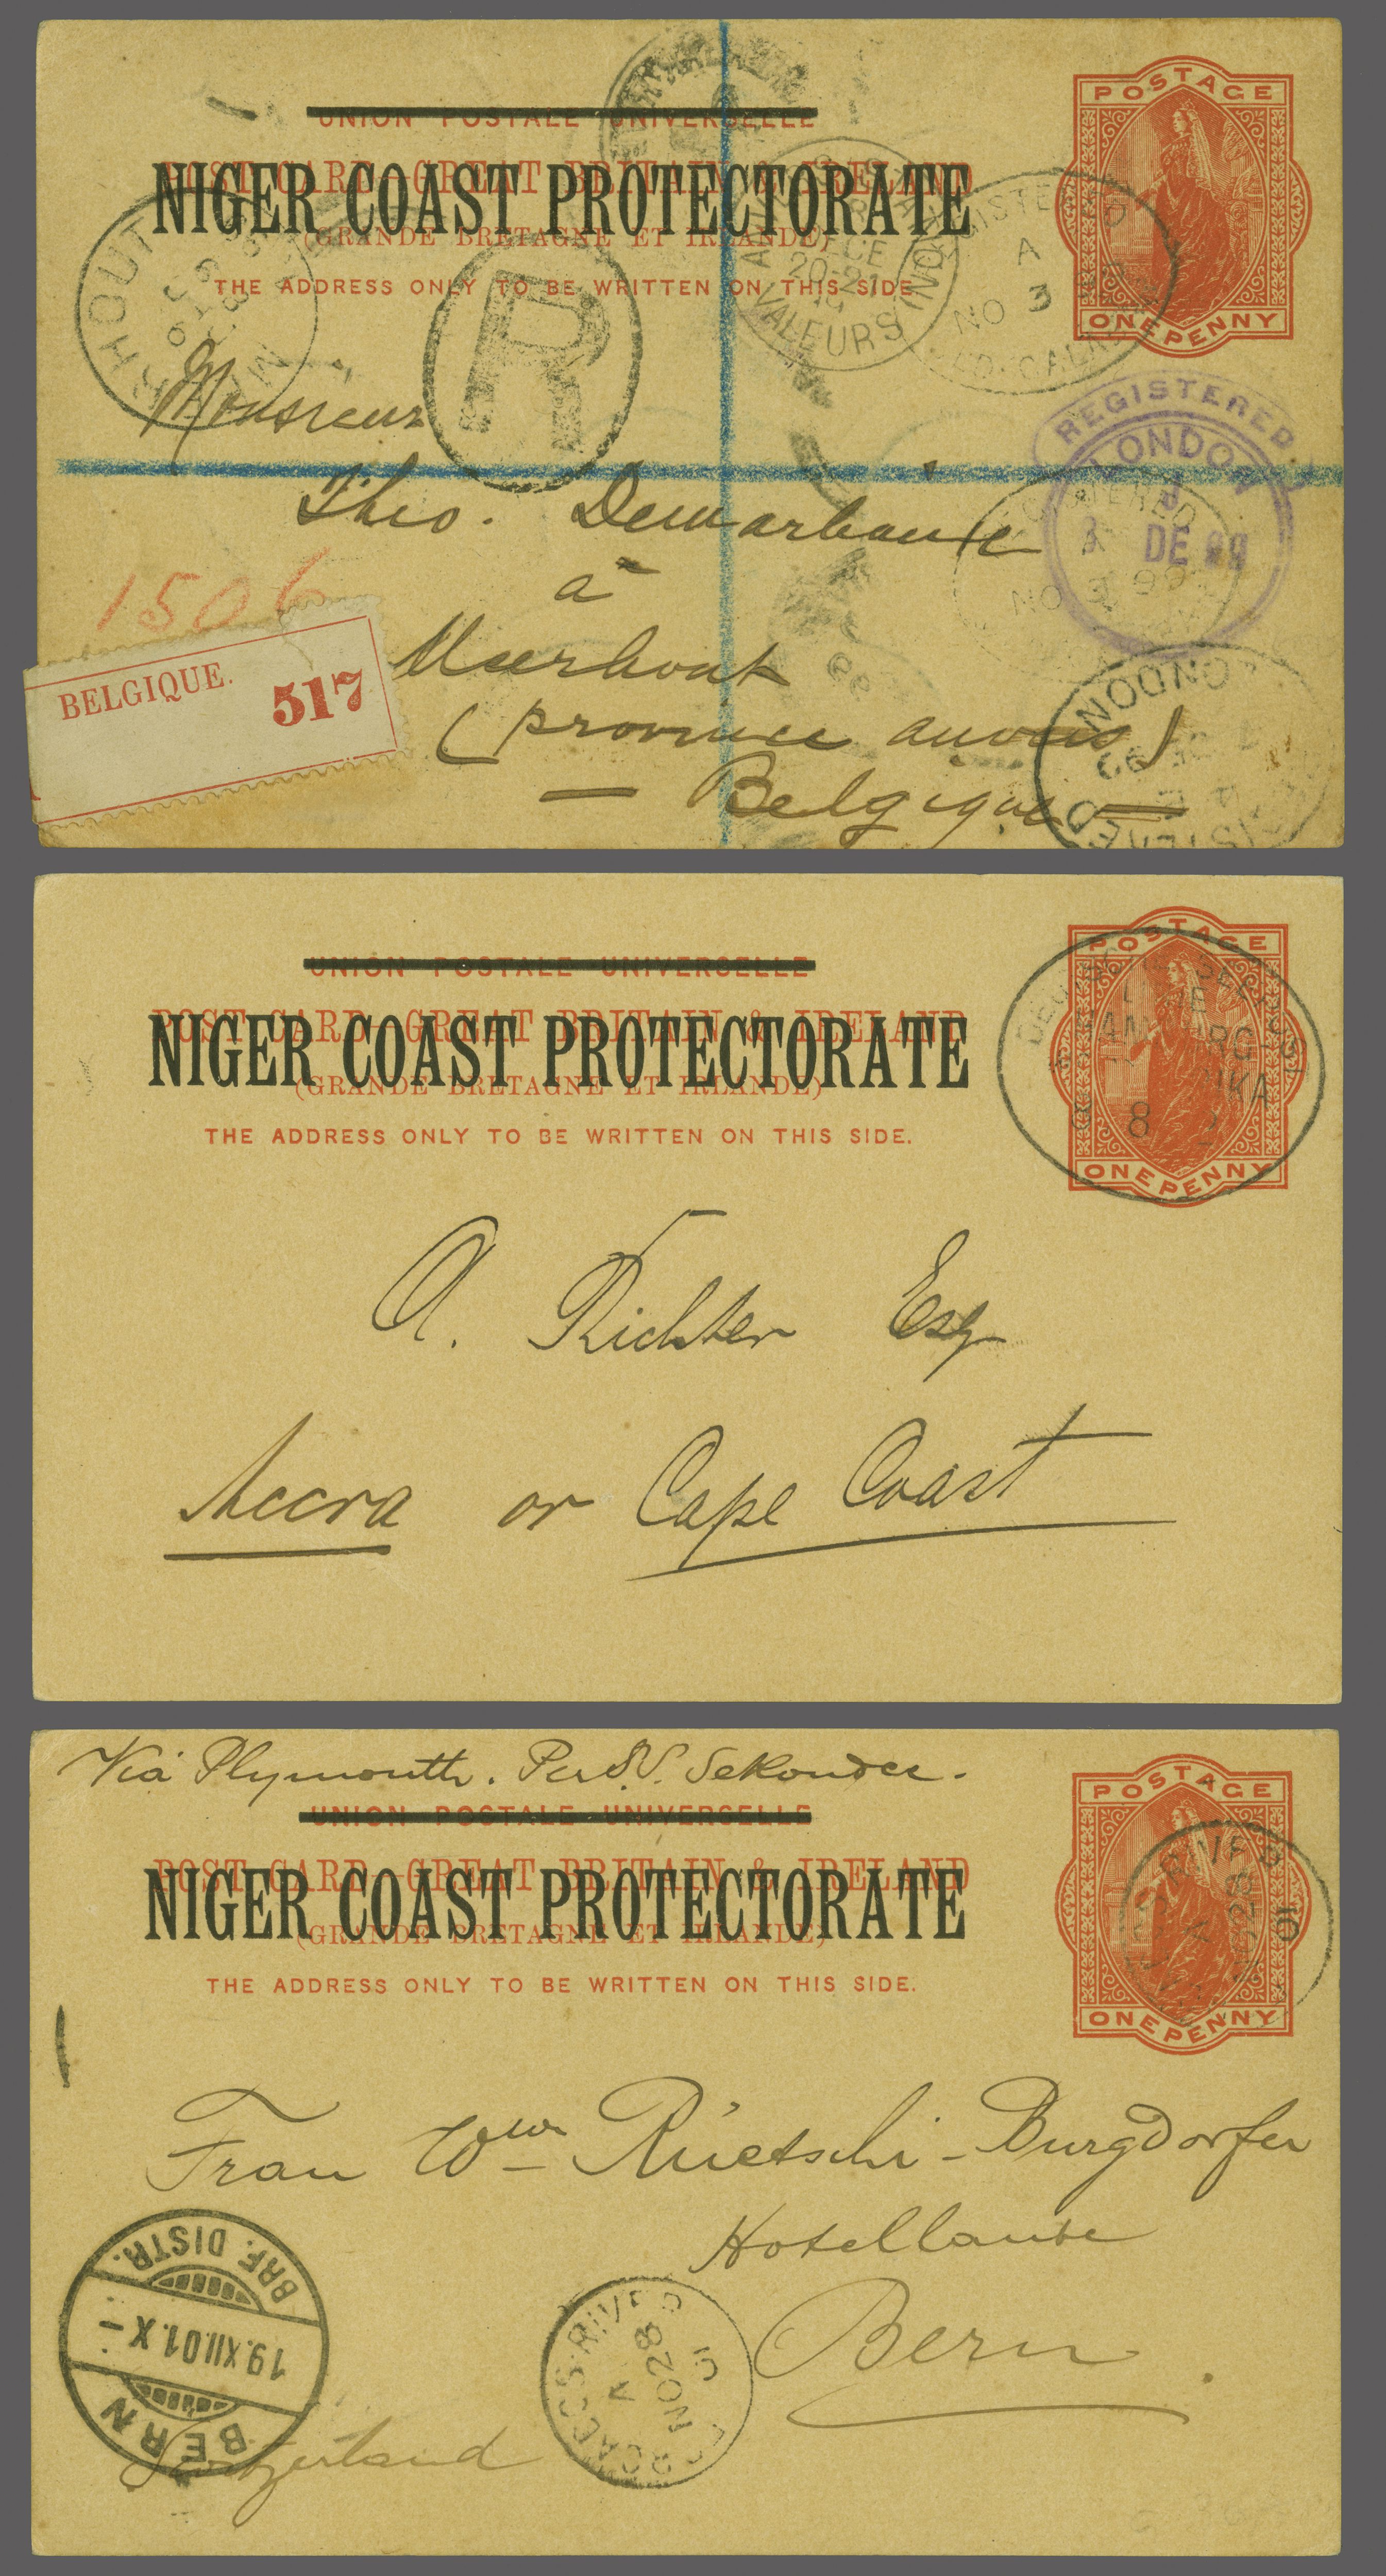 UNION POSTALE UNIVERSELLE
POST CARD - GREAT BRITAIN & IRELAND
NIGER COAST PROTECTORATE
(GRANDE BRETAGNE ET IRLANDE)
THE ADDRESS ONLY TO BE WRITTEN ON THIS SIDE.
POSTAGE
ONE PENNY
R
VALEURS
20-21
REGISTERED
A
NO 3
REGISTERED
LONDON
DE 99
NO 3 99
LONDON
Monsieur
Theo.
à
Meerhout
(province anvers)
— Belgique —
1506
BELGIQUE.
517
UNION POSTALE UNIVERSELLE
POST CARD - GREAT BRITAIN & IRELAND
NIGER COAST PROTECTORATE
(GRANDE BRETAGNE ET IRLANDE)
THE ADDRESS ONLY TO BE WRITTEN ON THIS SIDE.
POSTAGE
ONE PENNY
8
A. Richter Esq
Accra or Cape Coast
Via Plymouth. Per S.S. Sekondee.
UNION POSTALE UNIVERSELLE
POST CARD - GREAT BRITAIN & IRELAND
NIGER COAST PROTECTORATE
(GRANDE BRETAGNE ET IRLANDE)
THE ADDRESS ONLY TO BE WRITTEN ON THIS SIDE.
POSTAGE
ONE PENNY
Frau Wwe Rüetschi-Burgdorfer
Hotellaube
Bern.
Switzerland
BERN
19.XII.01.X-
BRF. DISTR.
FORCADOS-RIVER
A
NO 28
01